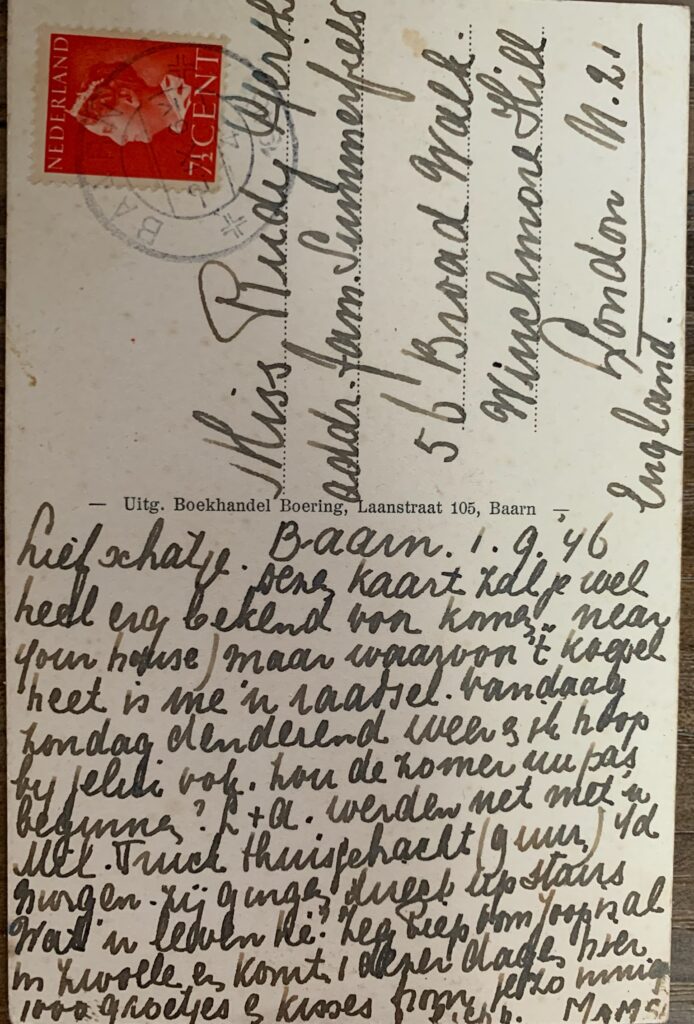 NEDERLAND
7½ CENT
BA
Miss Rudy
addr. Fam. Summerfield
56 Broad Walk.
Winchmore Hill
London N.21
England.
— Uitg. Boekhandel Boering, Laanstraat 105, Baarn —
Baarn. 1.9.'46
Lief schatje.
Deze kaart zal je wel
heel erg bekend voor komen „near
your house) maar waarvan 't
heet is me 'n raadsel. Vandaag
Zondag denderend weer & ik hoop
bij jelui ook. Zou de zomer nu pas
beginnen? L + A. werden net met 'n
Mil. Truck thuisgebracht (9 uur) v/d
morgen. Zij gingen direct upstairs
Wat 'n leven hè? Zeg Piep oom Joop is al
in Zwolle en komt 1 dezer dagen hier
1000 groetjes & kisses from
MAMS